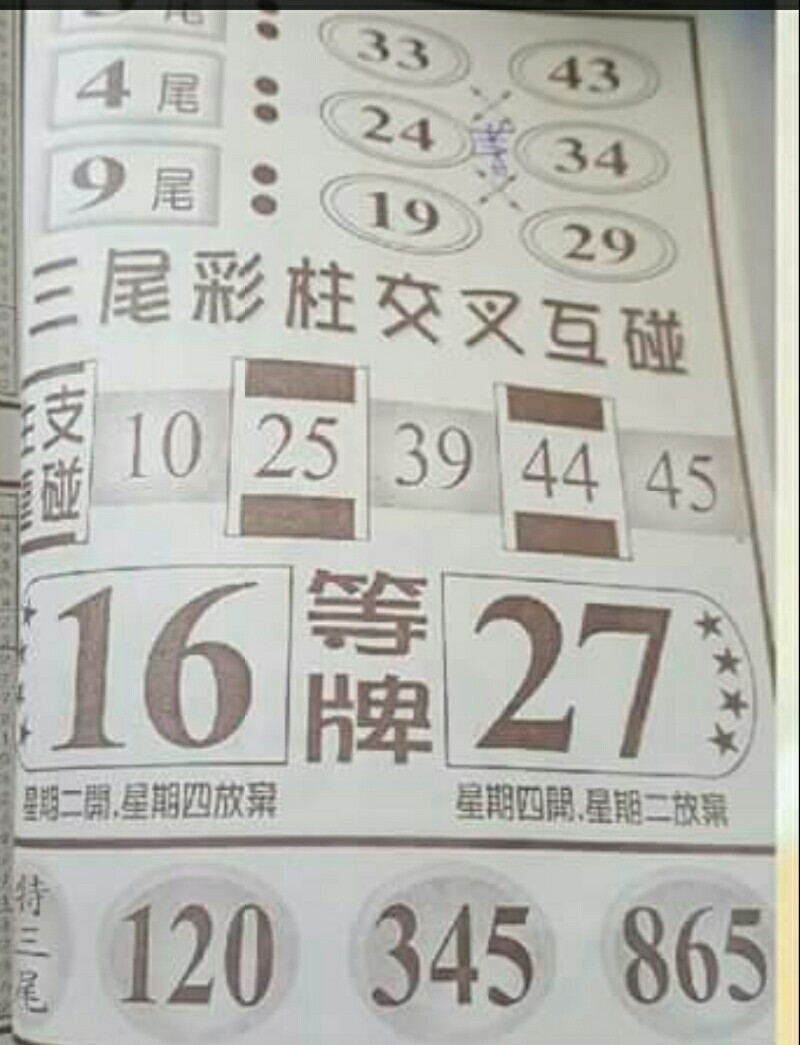 尾
33 43
4尾 24 34
9尾 19 29
三尾彩柱交叉互碰
支碰 10 25 39 44 45
16 等牌 27
星期二開.星期四放棄 星期四開.星期二放棄
特三尾 120 345 865